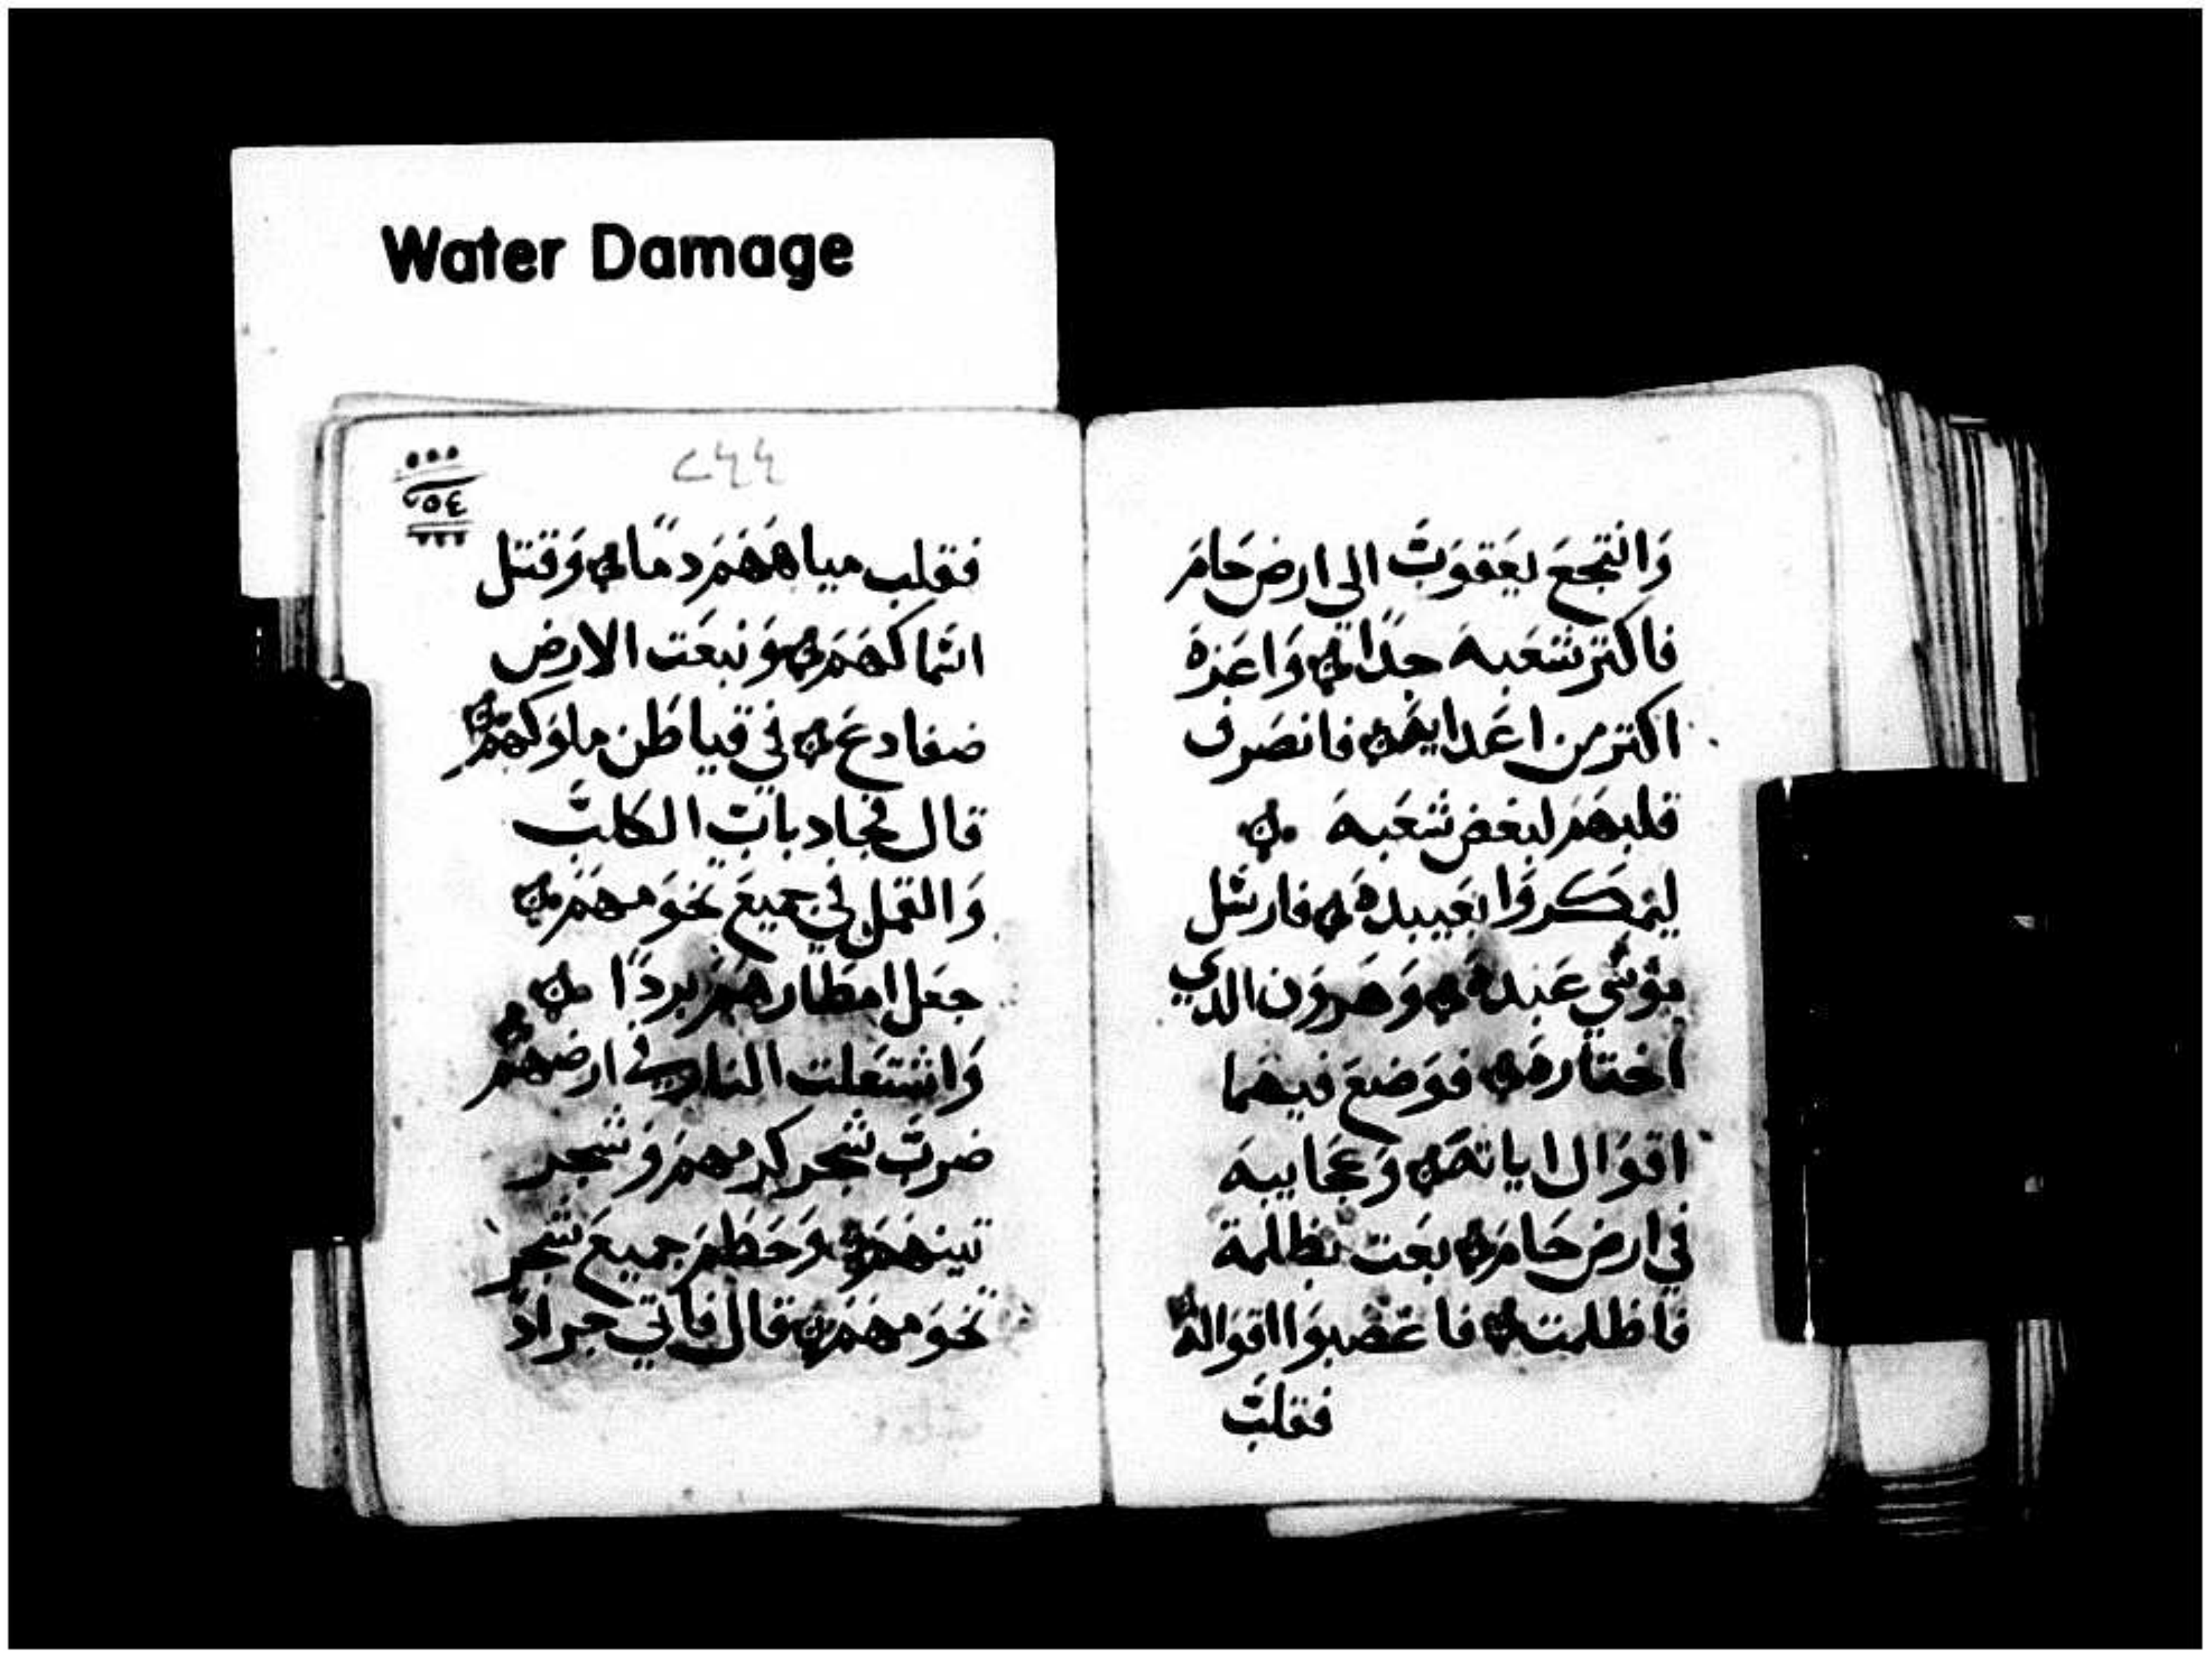 Water Damage
وَانتجَعَ يعَقوَبَ الى ارض حَامَ
فاكترَ شعَبهَ جدًا وَاعَزهَ
اكترَ من اعَدايهَ فانصَرف
قلبهَمَ لبغض شعَبهَ
ليَمكروَا بعَبيدهَ فارسَل
موَسَي عَبدهَ وَهروَن الدي
اختارهَ فوَضعَ فيهمَا
اقوَال اياتهَ وَعَجايبهَ
في ارض حَامَ بعَت بظلمة
فاظلمت فاغضبوَا اقوَالهَ
فقلبَ
٢٤٤
٢٥٤
فقلب مياههَمَ دمًا وَقتل
اسَماكهَمَ وَنبعَت الارض
ضفادعَ في قياطَن ملوَكهَمَ
قال فجا دبابَ الكلبَ
وَالقمل في جميعَ تخوَمهَمَ
جعَل امطارهمَ بردًا
وَاشتعَلت النار في ارضهمَ
ضربَ شجر كرمهمَ وَشجر
تينهمَ وَحَطمَ جميعَ شجر
تخوَمهَمَ قال فاتي جراد